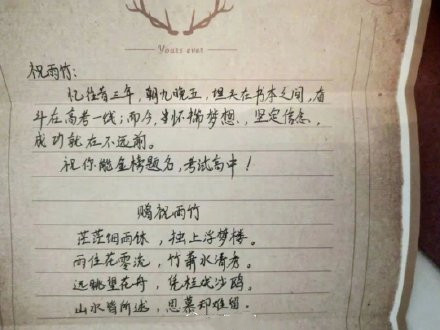 Yours ever
祝雨竹:
忆往昔三年,朝九晚五,埋头在书本之间,奋
斗在高考一线;而今,身怀揣梦想,坚定信念,
成功就在不远前。
祝你能金榜题名,考试高中!
赠祝雨竹
茫茫烟雨休,独上浮梦楼。
雨住花零流,竹萧水清秀。
远眺望花舟,凭栏戏沙鸥。
山水皆所述,思慕却难留。